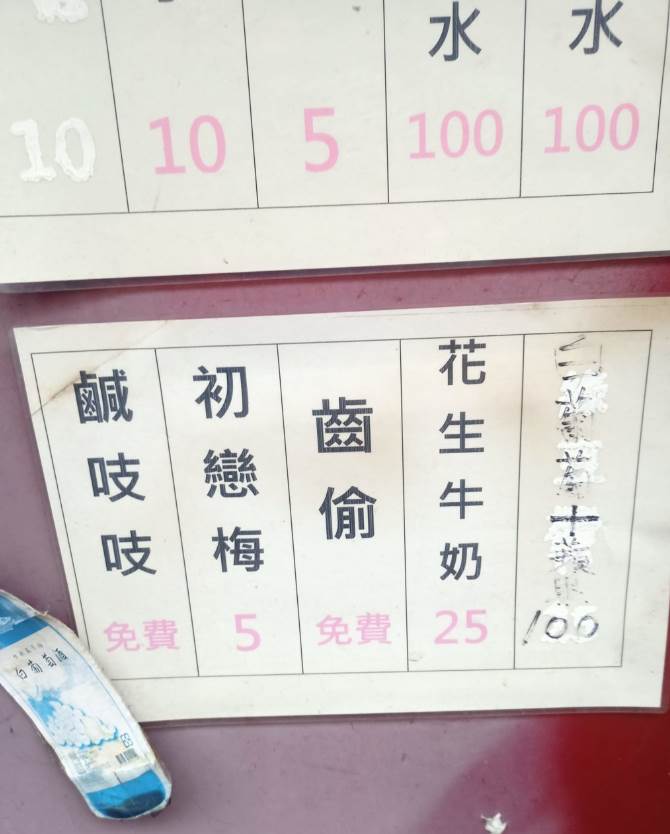 水
水
10
10
5
100
100
鹹吱吱
免費
初戀梅
5
齒偷
免費
花生牛奶
25
100
白葡萄